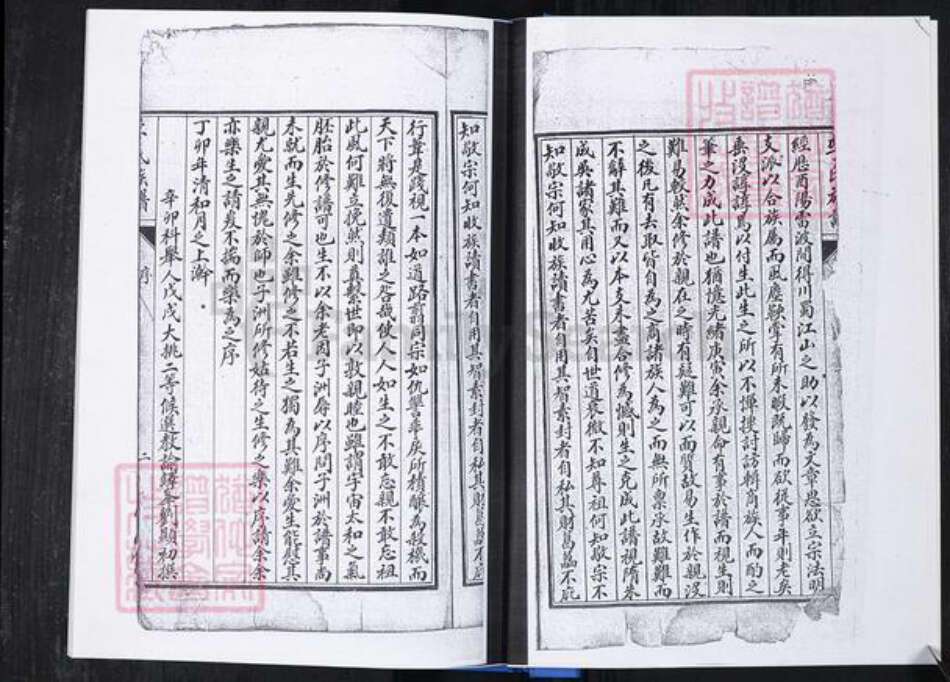 經歷酉陽雷波間得川蜀江山之助以發為文章思欲立宗法明
支派以合族屬而風塵鞅掌有所未暇既歸而欲從事年則老矣
垂沒諄諄焉以付生此生之所以不憚搜討訪輯商族人而酌之
筆之力成此譜也猶憶光緒庚寅余承親命有事於譜而視生則
難易較然余修於親在之時有疑難可以面質故易生作於親沒
之後凡有去取皆自為之商諸族人為之而無所禀承故難難而
不辭其難而又以本支未盡合修為憾則生之克成此譜視隋朱
成吳諸家其用心為尤苦矣自世道衰微不知尊祖何知敬宗不
知敬宗何知收族讀書者自用其智素封者自私其財葛藟不庇
知敬宗何知收族讀書者自用其智素封者自私其財葛藟不庇
行葦是踐視一本如道路翦同宗如仇讐乖戾所積釀為殺機而
天下將無復遺類誰之咎哉使人人如生之不敢忘親不敢忘祖
此風何難立挽然則真繫世即以敦親睦也雖謂宇宙太和之氣
胚胎於修譜可也生不以余老因子洲辱以序問子洲於譜事尚
未就而生先修之余雖修之不若生之獨為其難余愛生能慰其
親尤愛其無愧於師也子洲所修姑待之生修之樂以序請余余
亦樂生之請爰不揣而樂為之序
丁卯年清和月之上澣
辛卯科舉人戊戌大挑二等候選教諭 劉顯初撰
氏族譜
序
二